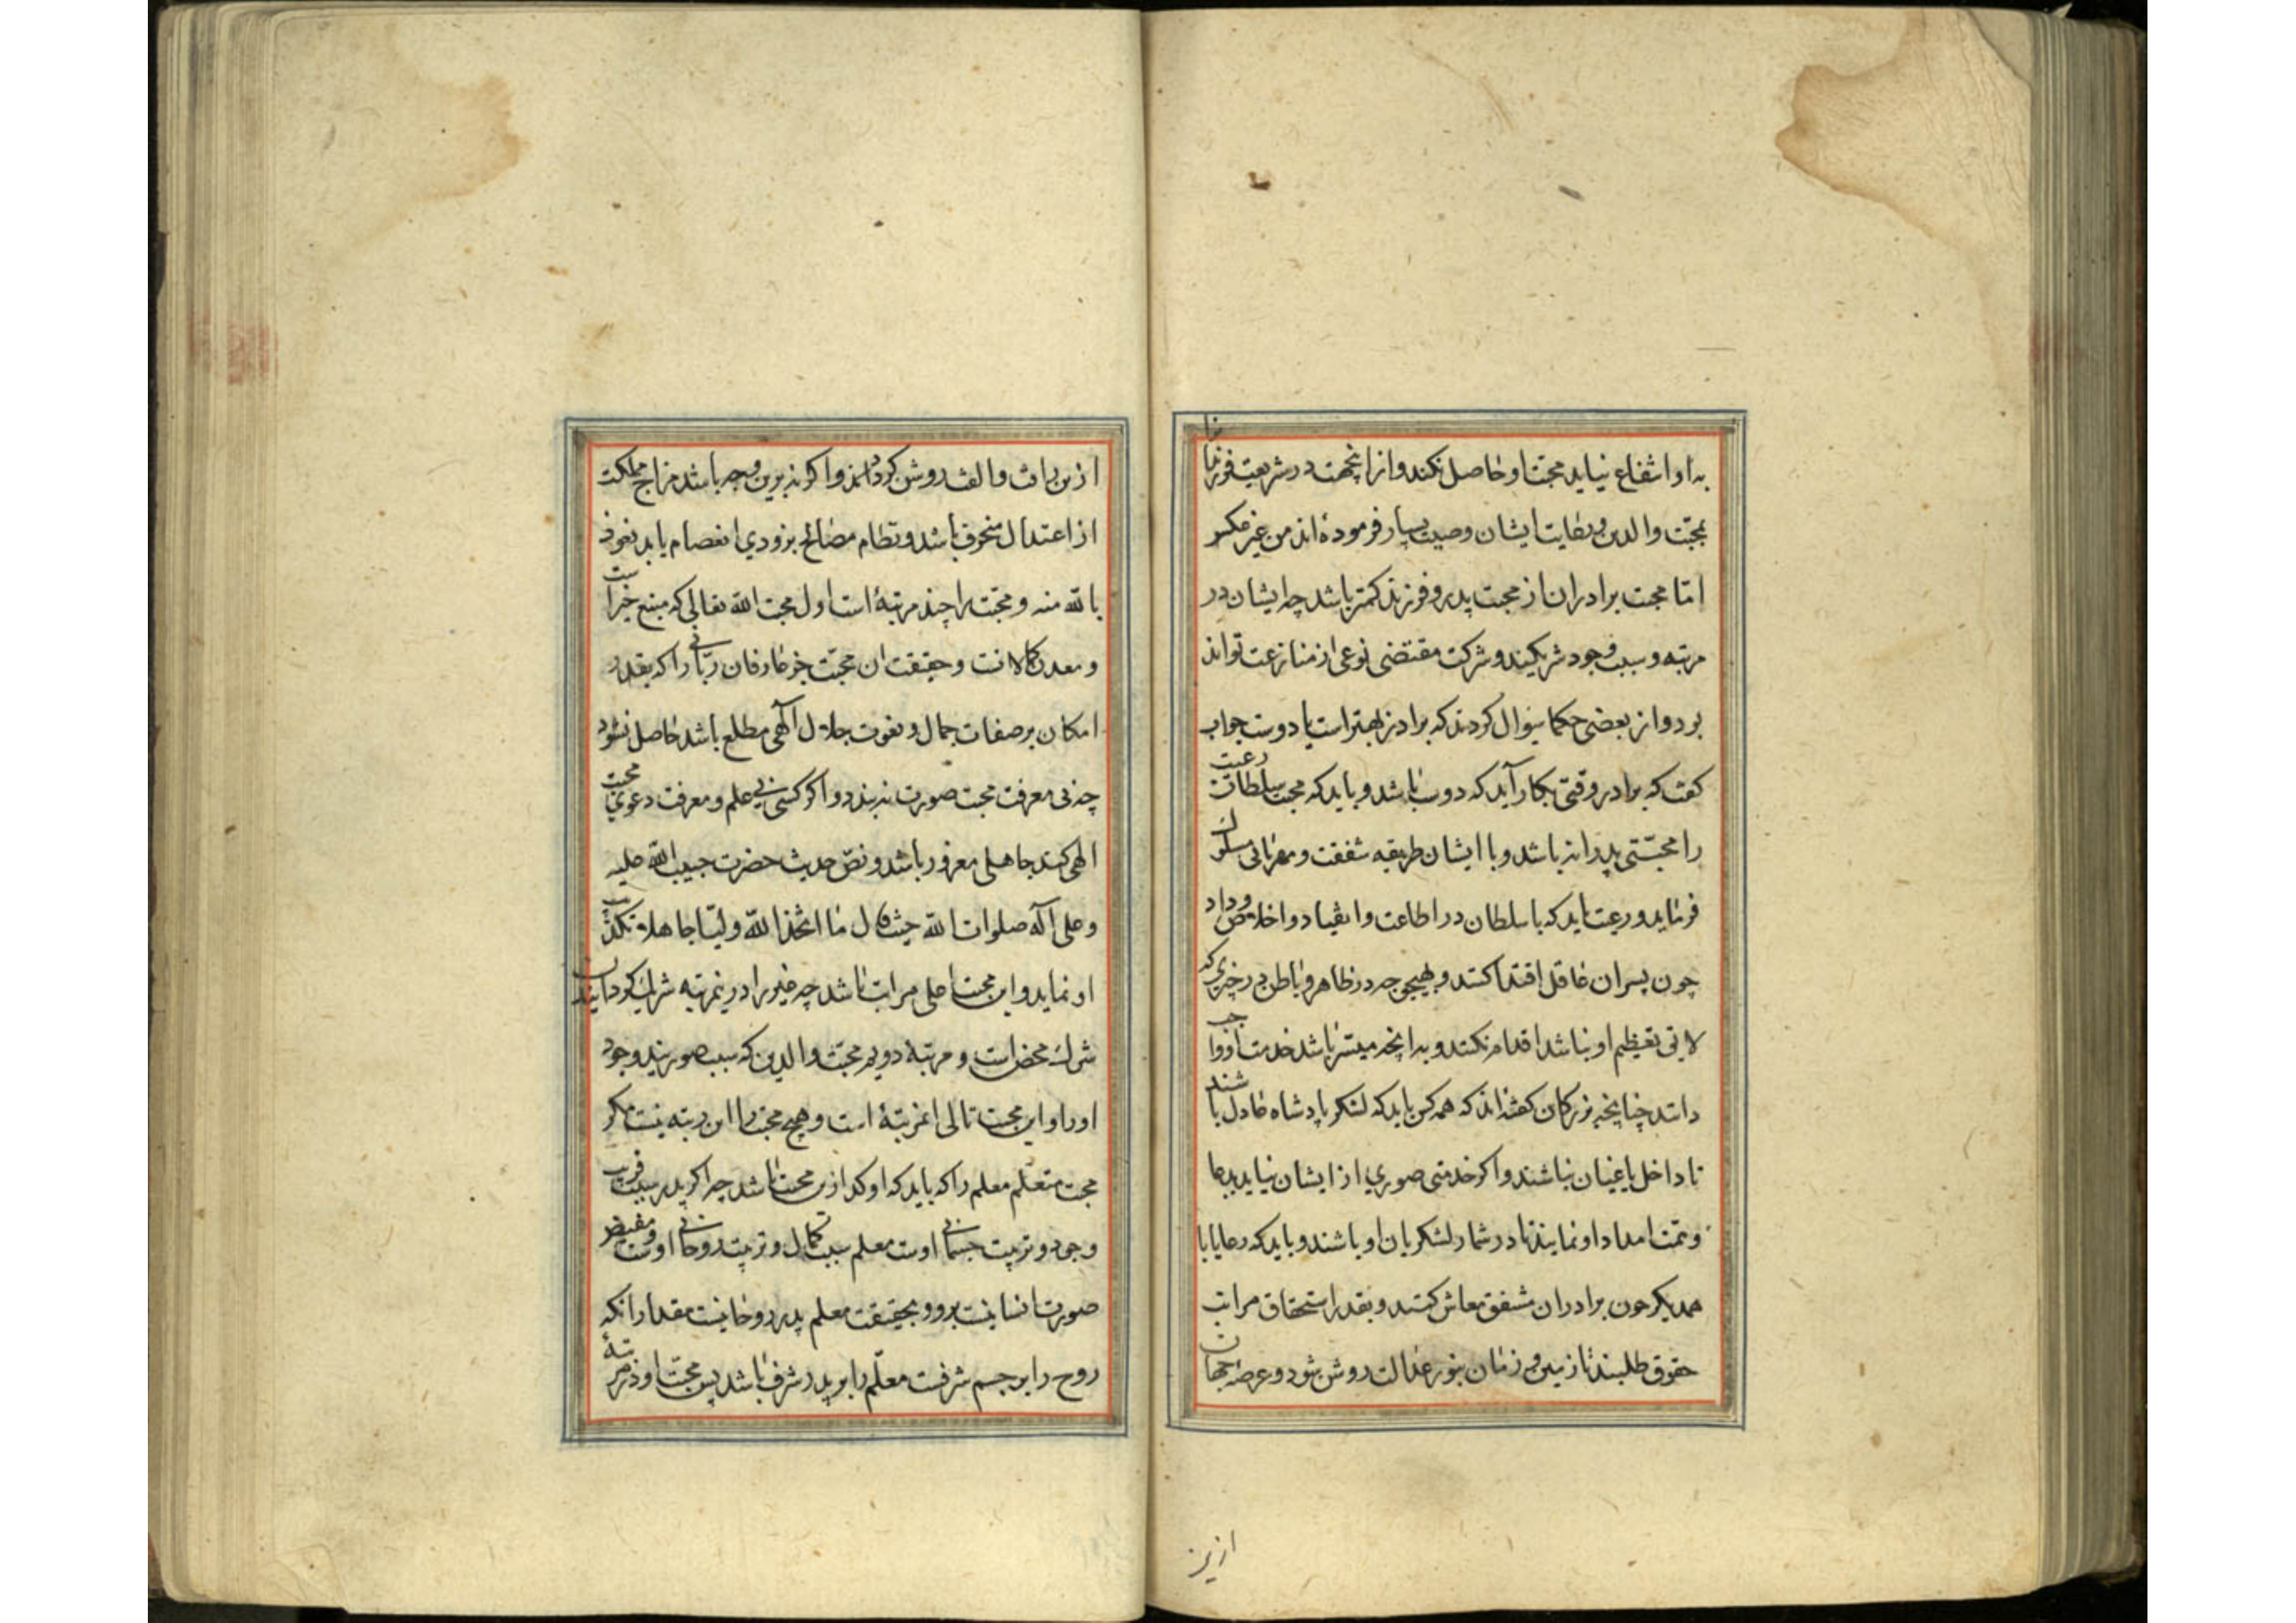 به او انتفاع نیابد محبت او حاصل نکند و از این جهت در شریعت فرزند را
بمحبت والدین و رعایت ایشان وصیت بسیار فرموده اند من غیر عکس
اما محبت برادران از محبت پدر و فرزند کمتر باشد چه ایشان در
مرتبه و سبب وجود شریکند و شرکت مقتضی نوعی از منازعت تواند
بود و از بعضی حکما سؤال کردند که برادر بهتر است یا دوست جواب
گفت که برادر وقتی بکار آید که دوست باشد و باید که محبت سلطان رعیت
را محبتی پدرانه باشد و با ایشان طریقه شفقت و مهربانی مسلوک
فرماید و رعیت باید که با سلطان در اطاعت و انقیاد و اخلاص و داد
چون پسران عاقل اقتدا کنند و بهیچ وجه در ظاهر و باطن در چیزی که
لایق تعظیم او نباشد اقدام نکنند و بدانچه میسر باشد خدمت او واجب
دانند چنانچه بزرگان گفته اند که همه کس باید که لشکر پادشاه عادل باشند
تا داخل یاغیان نباشند و اگر خدمتی صوری از ایشان نیاید بدعا
و همت امداد او نمایند تا در شمار لشکریان او باشند و باید که رعایا با
همدیگر چون برادران مشفق معاش کنند و بقدر استحقاق مراتب
حقوق طلبند تا زمین و زمان بنور عدالت روشن شود و عرصه جهان
ازین
ازین رافت و الفت روشن گردد و اگر نه برین وجه باشد مزاج مملکت
از اعتدال منحرف باشد و نظام مصالح بزودی انفصام یابد نعوذ
بالله منه و محبت را چند مرتبه است اول محبت الله تعالی که منبع خیراست
و معدن کمالاتست و حقیقت آن محبت جز عارفان ربانی را که بقدر
امکان بر صفات جمال و نعوت جلال آلهی مطلع باشد حاصل نشود
چه بی معرفت محبت صورت نه بندد و اگر کسی بی علم و معرفت دعوی محبت
الهی کند جاهلی مغرور باشد و نص حدیث حضرت حبیب الله علیه
و علی آله صلوات الله حیث قال ما اتخذ الله ولیّا جاهلا تکذیب
او نماید و این محبت اعلی مراتب باشد چه غیر را درین مرتبه شریک گردانیدن
شرک محض است و مرتبهٔ دویم محبت والدین که سبب صوریند وجود
او را و این محبت تالی این مرتبهٔ است و هیچ محبت را این رتبه نیست مگر
محبت متعلم معلم را که باید که اوکد ازین محبت باشد چرا که پدر سبب قریب
وجود و تربیت جسمانی اوست معلم سبب کمال و تربیت روحانی اوست و مفیض
صورت انسانیت بر وو بحقیقت معلم پدر روحانیست مقدار آنکه
روح را بر جسم شرفست معلّم را بر پدر شرف باشد پس محبت او در مرتبهٔ